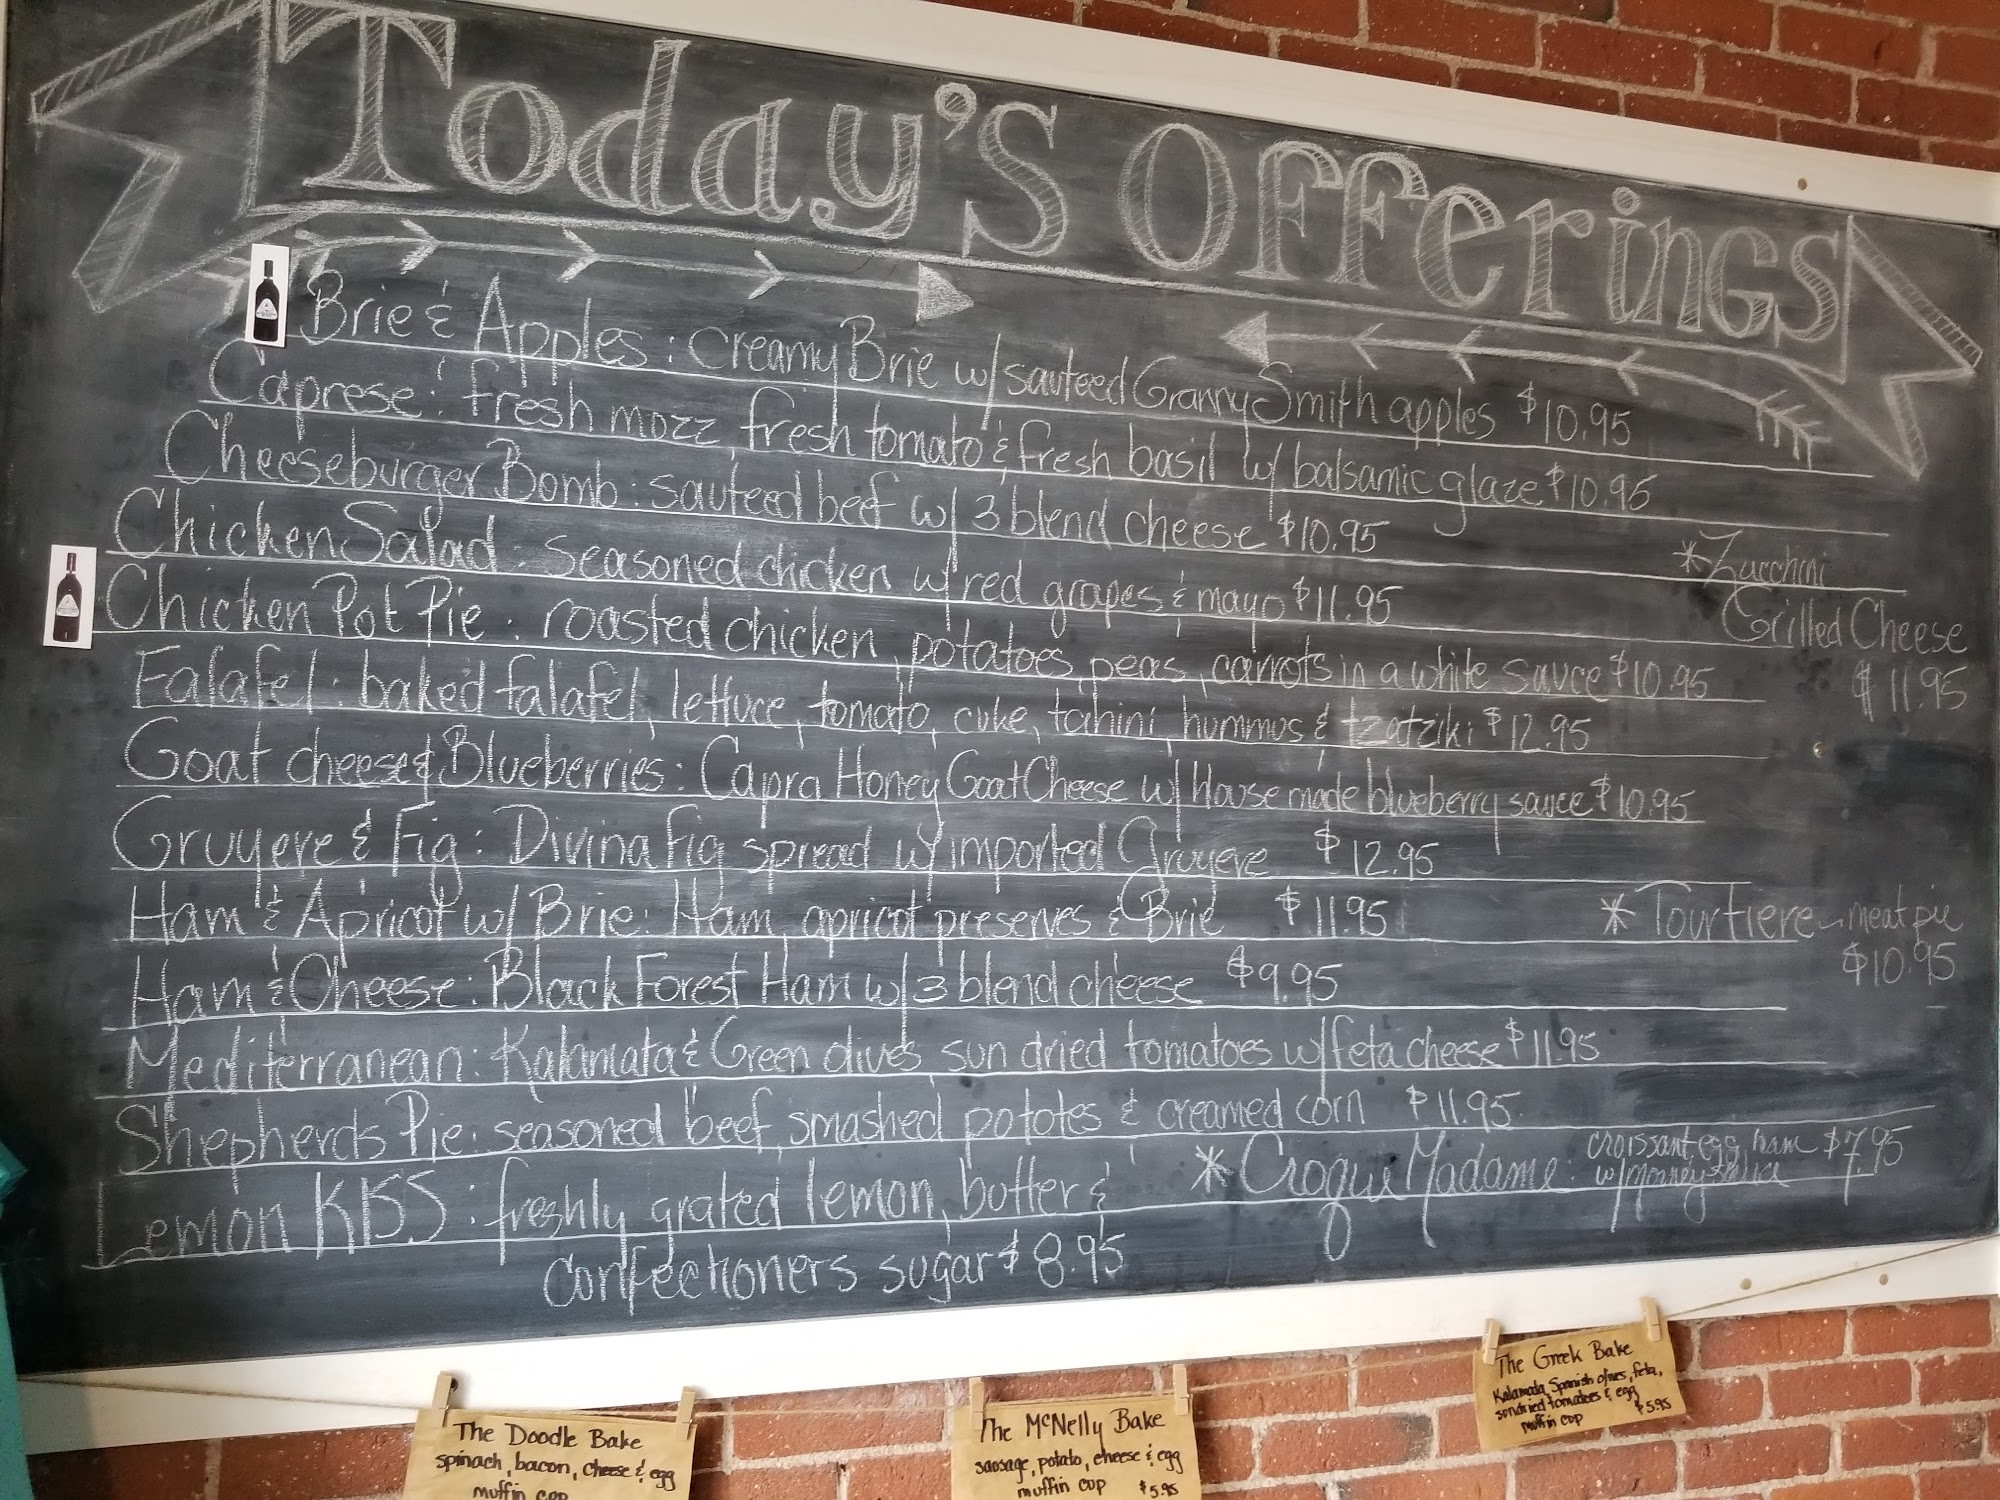 Today's Offerings
Brie & Apples: creamy Brie w/ sauteed Granny Smith apples $10.95
Caprese: fresh mozz, fresh tomato & fresh basil w/ balsamic glaze $10.95
Cheeseburger Bomb: sauteed beef w/ 3 blend cheese $10.95
Chicken Salad: seasoned chicken w/ red grapes & mayo $11.95
*Zucchini
Grilled Cheese
$11.95
Chicken Pot Pie: roasted chicken, potatoes, peas, carrots in a white sauce $10.95
Falafel: baked falafel, lettuce, tomato, cuke, tahini, hummus & tzatziki $12.95
Goat cheese & Blueberries: Capra Honey Goat Cheese w/ House made blueberry sauce $10.95
Gruyere & Fig: Divina Fig spread w/ imported Gruyere $12.95
Ham & Apricot w/ Brie: Ham, apricot preserves & Brie $11.95
*Tourtiere - meat pie
$10.95
Ham & Cheese: Black Forest Ham w/ 3 blend cheese $9.95
Mediterranean: Kalamata & Green olives, sun dried tomatoes w/ feta cheese $11.95
Shepherds Pie: seasoned beef, smashed pototes & creamed corn $11.95
*Croque Madame: croissant, egg, ham $7.95
w/
Lemon KISS: freshly grated lemon, butter &
confectioners sugar $8.95
The Doodle Bake
spinach, bacon, cheese & egg
muffin cup
The McNelly Bake
sausage, potato, cheese & egg
muffin cup $5.95
The Greek Bake
Kalamata, Spanish olives, feta,
sundried tomatoes & egg
muffin cup $5.95